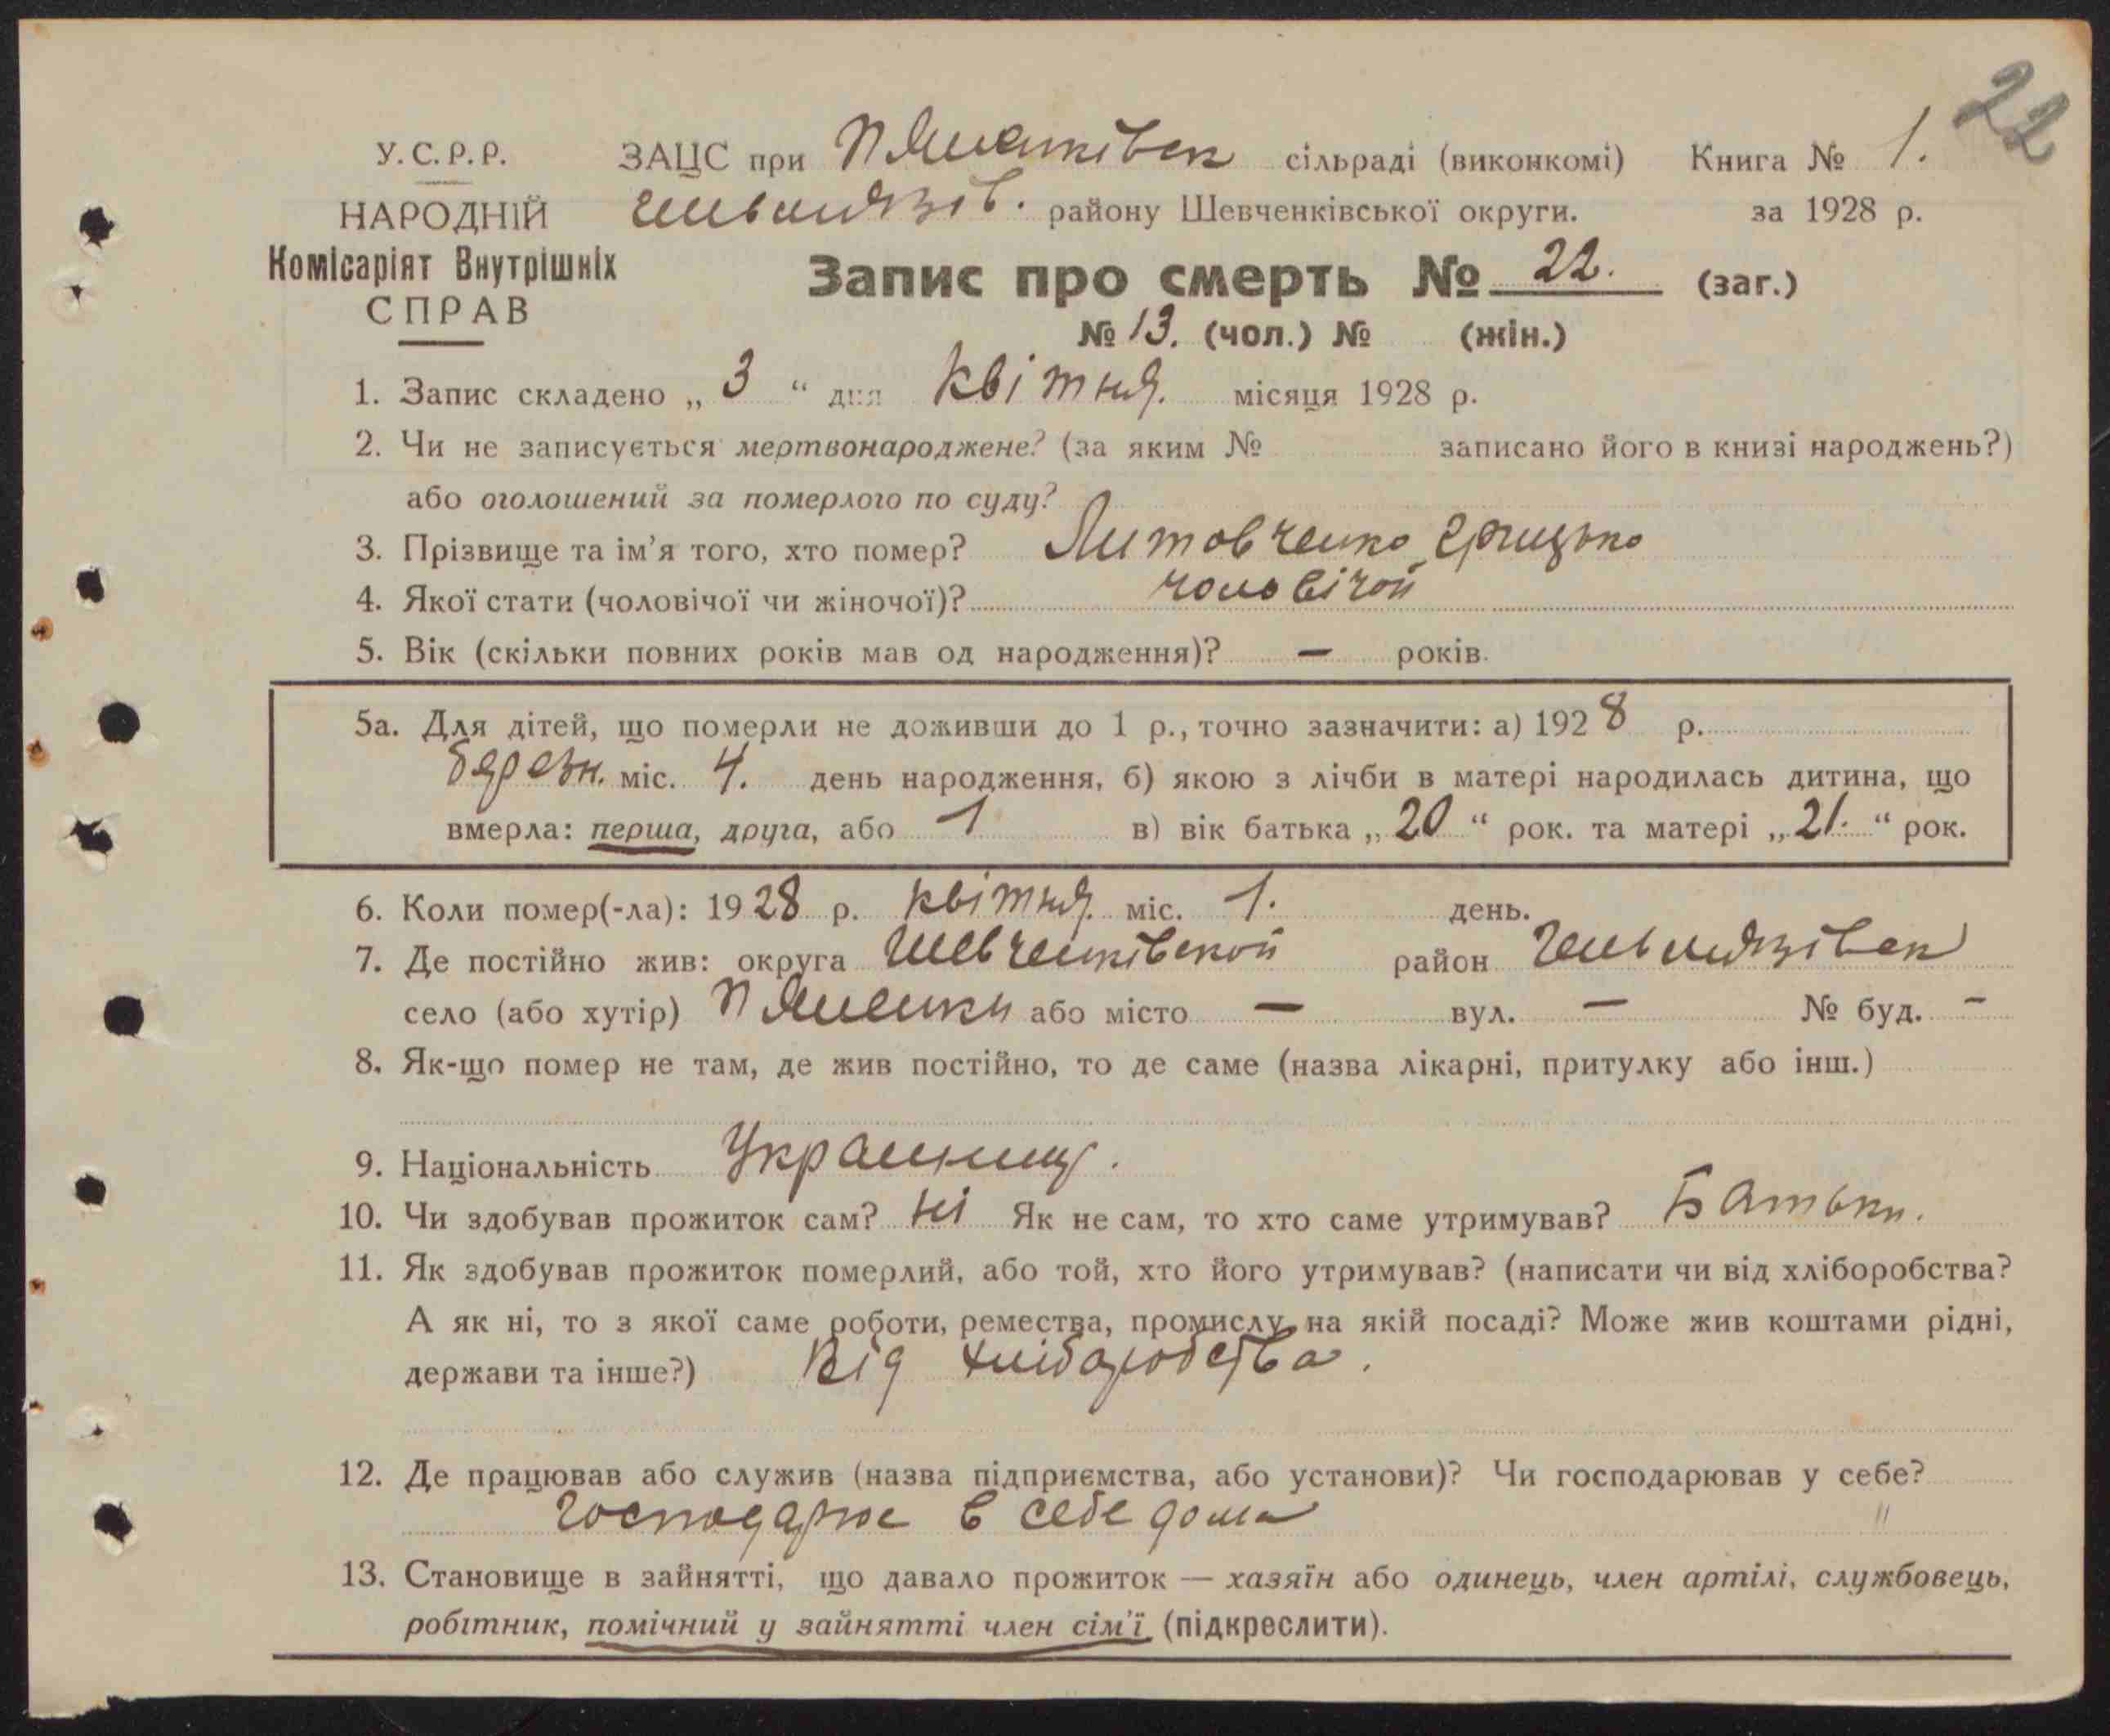 22
У.С.Р.Р. ЗАЦС при Пʼяшетківськ сільраді (виконкомі) Книга № 1.
НАРОДНІЙ Гельмязів. району Шевченківської округи. за 1928 р.
Комісаріят Внутрішніх
СПРАВ
Запис про смерть № 22. (заг.)
№ 13. (чол.) № (жін.)
1. Запис складено „ 3 “ дня квітня. місяця 1928 р.
2. Чи не записується мертвонароджене? (за яким № записано його в книзі народжень?)
або оголошений за померлого по суду?
3. Прізвище та ім’я того, хто помер? Литовченко Грицько
4. Якої стати (чоловічої чи жіночої)? чоловічой
5. Вік (скільки повних років мав од народження)? — років.
5а. Для дітей, що померли не доживши до 1 р., точно зазначити: а) 1928 р.
березн. міс. 4. день народження, б) якою з лічби в матері народилась дитина, що
вмерла: перша, друга, або 1 в) вік батька „ 20 “ рок. та матері „ 21. “ рок.
6. Коли помер(-ла): 1928 р. квітня. міс. 1. день.
7. Де постійно жив: округа Шевченківской район Гельмязівськ
село (або хутір) або місто — вул. — № буд. -
8. Як-що помер не там, де жив постійно, то де саме (назва лікарні, притулку або інш.)
9. Національність Украинец.
10. Чи здобував прожиток сам? Ні Як не сам, то хто саме утримував? Батьки.
11. Як здобував прожиток померлий, або той, хто його утримував? (написати чи від хліборобства?
А як ні, то з якої саме роботи, ремества, промислу, на якій посаді? Може жив коштами рідні,
держави та інше?) Від хліборобства.
12. Де працював або служив (назва підприємства, або установи)? Чи господарював у себе?
Господарює в себе дома "
13. Становище в зайнятті, що давало прожиток — хазяїн або одинець, член артілі, службовець,
робітник, помічний у зайнятті член сім’ї (підкреслити).